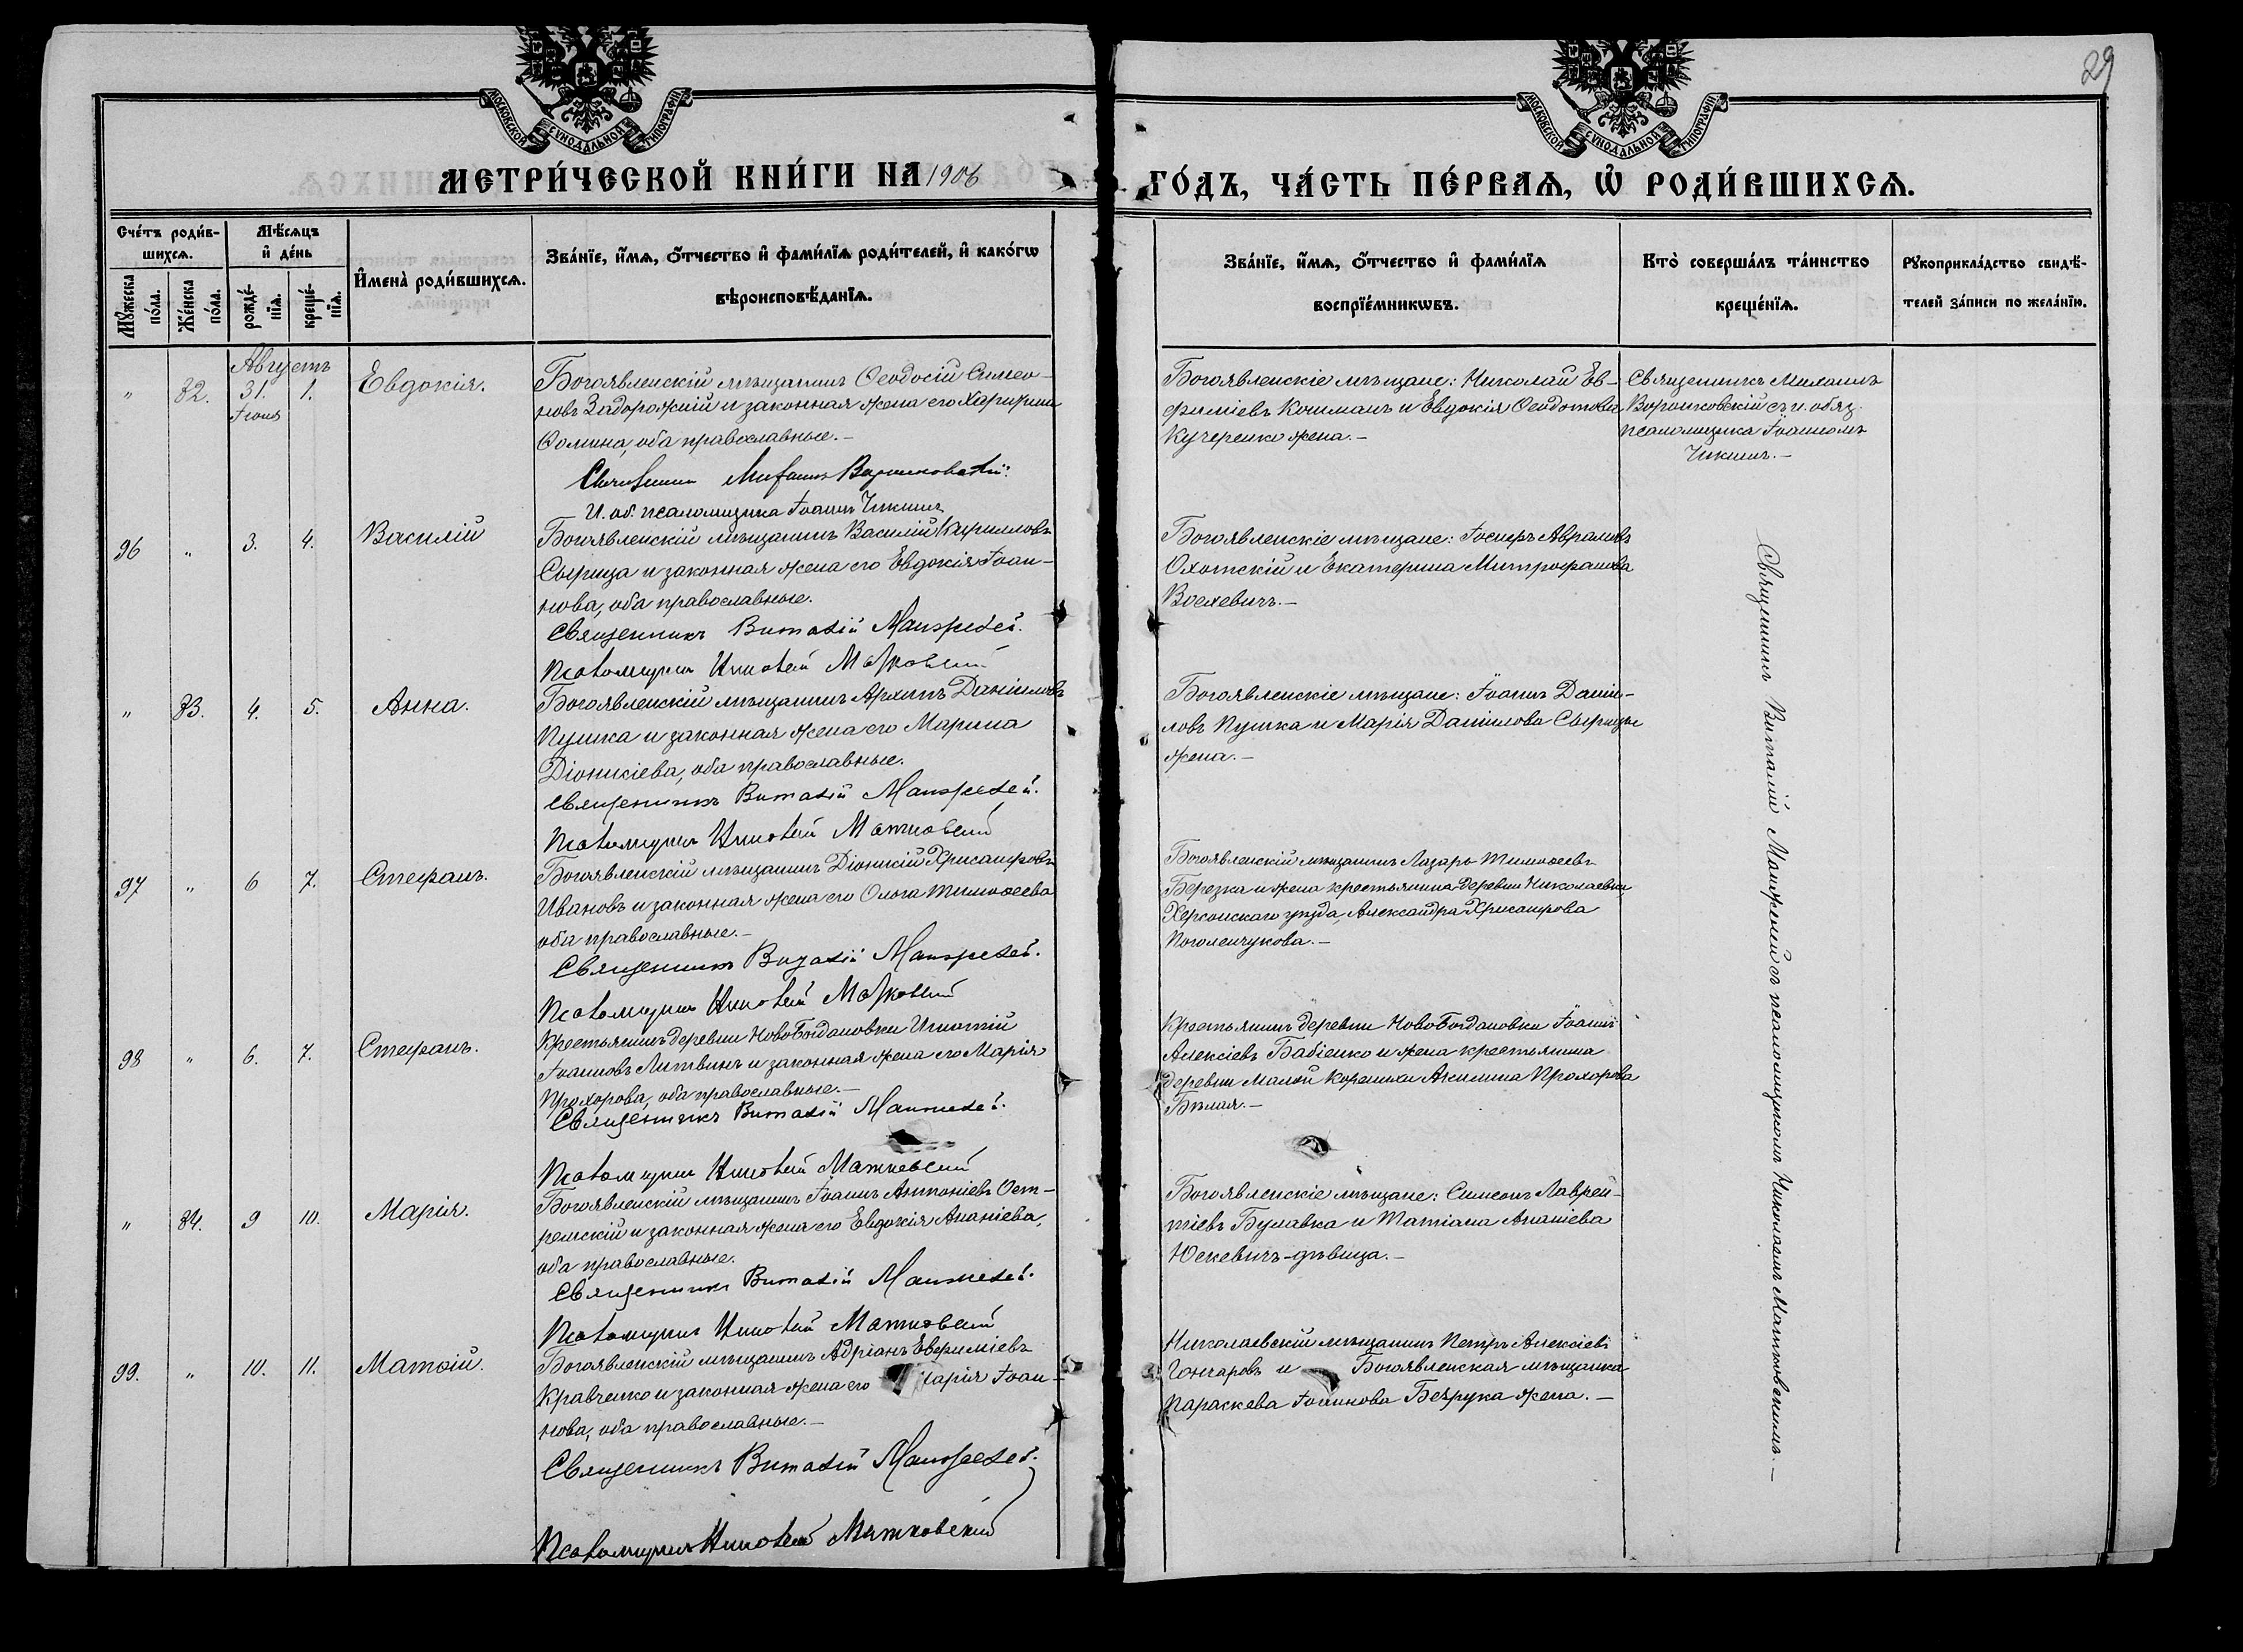 29
МОСКОВСКОЙ СѴНОДАЛЬНОЙ ТИПОГРАФІИ
МОСКОВСКОЙ СѴНОДАЛЬНОЙ ТИПОГРАФІИ
МЕТРИ́ЧЕСКОЙ КНИ́ГИ НА 1906
ГО́ДЪ, ЧА́СТЬ ПЕ́РВАѦ, Ѡ҆ РОДИ́ВШИХСѦ.
Сче́тъ роди́в-
шихсѧ.
Мꙋ́жеска по́ла.
Же́нска по́ла.
Мѣ́сѧцъ
и҆ де́нь
рожде́-
нїѧ.
креще́-
нїѧ.
И҆мена̀ роди́вшихсѧ.
Зва́нїе, и҆́мѧ, ѻ҆́тчество и҆ фами́лїѧ роди́телей, и҆ како́гѡ
вѣроисповѣ́данїѧ.
Зва́нїе, и҆́мѧ, ѻ҆́тчество и҆ фами́лїѧ
воспрїе́мникѡвъ.
Кто̀ соверша́лъ та́инство
креще́нїѧ.
Рꙋкоприкла́дство свидѣ́-
телей за́писи по жела́нїю.
Августъ
" 82. 31. 1. Евдокія.
Іюля
Богоявленскій мѣщанинъ Ѳеодосій Симео-
новъ Задорожній и законная жена его Харитина
Ѳомина, оба православные.-
И. об. псаломщика Іоаннъ Чикинъ
Богоявленскіе мѣщане: Николай Ев-
фиміевъ Кошманъ и Евдокія Ѳеодотова
Кучеренко жена.-
Священникъ Михаилъ
Ворошковскій съ и. обяз.
псаломщика Іоанномъ
Чикинъ.-
96 " 3. 4. Василій
Богоявленскій мѣщанинъ Василій Кирилловъ
Сырица и законная жена его Евдокія Іоан-
нова, оба православные.
Священникъ Виталій Манжелей.
Псаломщикъ Николай Матковскій
Богоявленскіе мѣщане: Іосифъ Авраамовъ
Охотскій и Екатерина Митрофанова
" 83. 4. 5. Анна.
Богоявленскій мѣщанинъ Архипъ Даніиловъ
Пушка и законная жена его Марина
Діонисіева, оба православные.
Священникъ Виталій Манжелей.
Псаломщикъ Николай Матковскій
Богоявленскіе мѣщане: Іоаннъ Даніи-
ловъ Пушка и Марія Даніилова Сырица
жена.-
97 " 6 7. Стефанъ.
Богоявленскій мѣщанинъ Діонисій Хрисанфовъ
Ивановъ и законная жена его Ольга Тимоѳеева
оба православные.-
Священникъ Виталій Манжелей.
Псаломщикъ Николай Матковскій
Богоявленскій мѣщанинъ Лазарь Тимоѳеевъ
Березка и жена крестьянина деревни Николаевки,
Херсонскаго уѣзда, Александра Хрисанфова
98 " 6. 7. Стефанъ.
Крестьянинъ деревни НовоБогдановки Игнатій
Іоанновъ Литвинъ и законная жена его Марія
Прохорова, оба православные.-
Священникъ Виталій Манжелей.
Псаломщикъ Николай Матковскій
Крестьянинъ деревни НовоБогдановки Іоаннъ
Алексіевъ Бабіенко и жена крестьянина
деревни Малой Коренихи Акилина Прохорова
Бѣлая.-
" 84. 9 10. Марія.
Богоявленскій мѣщанинъ Іоаннъ Антоніевъ Ост-
ремскій и законная жена его Евдокія Ананіева,
оба православные.
Священникъ Виталій Манжелей.
Псаломщикъ Николай Матковскій
Богоявленскіе мѣщане: Симеонъ Лаврен-
тіевъ Булавка и Татіана Ананіева
Юскевичъ-дѣвица.-
99. " 10. 11. Матѳій.
Богоявленскій мѣщанинъ Адріанъ Евфиміевъ
Кравченко и законная жена его Марія Іоан-
нова, оба православные.-
Священникъ Виталій Манжелей.
Псаломщикъ Николай Матковскій
Николаевскій мѣщанинъ Петръ Алексіевъ
Гончаровъ и Богоявленская мѣщанка
Параскева Іоаннова Безрука жена.-
Священникъ Виталій Манжелей съ псаломщикомъ Николаемъ Матковскимъ.-